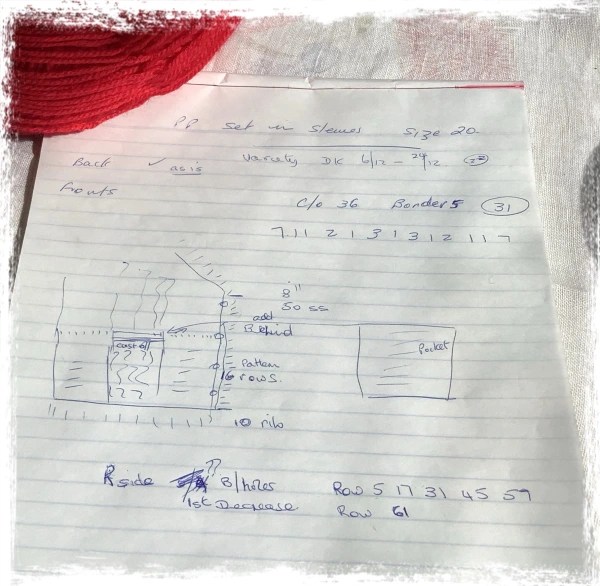 PP set in sleeves size 20
Back ✓ as is Variety DK 6/12 - 24/12
Fronts
C/o 36 Border 5 31
7 11 2 1 3 1 3 1 2 11 7
8"
50 ss
add
Behind
cast off
Pocket
Pattern
16 rows.
10 rib
R side ?? B/holes Row 5 17 31 45 59
1st Decrease Row 61